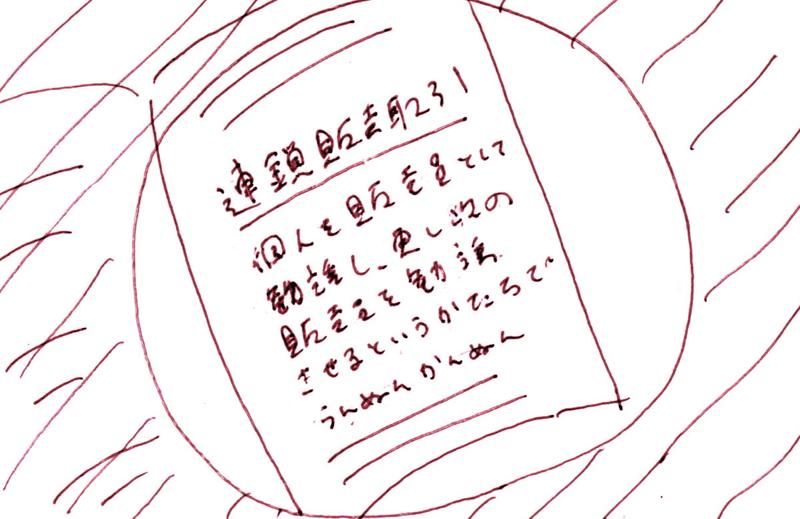 連鎖販売取引
個人を販売員として
勧誘し、更し次の
販売員を勧誘
させるというかたちで
うんぬんかんぬん